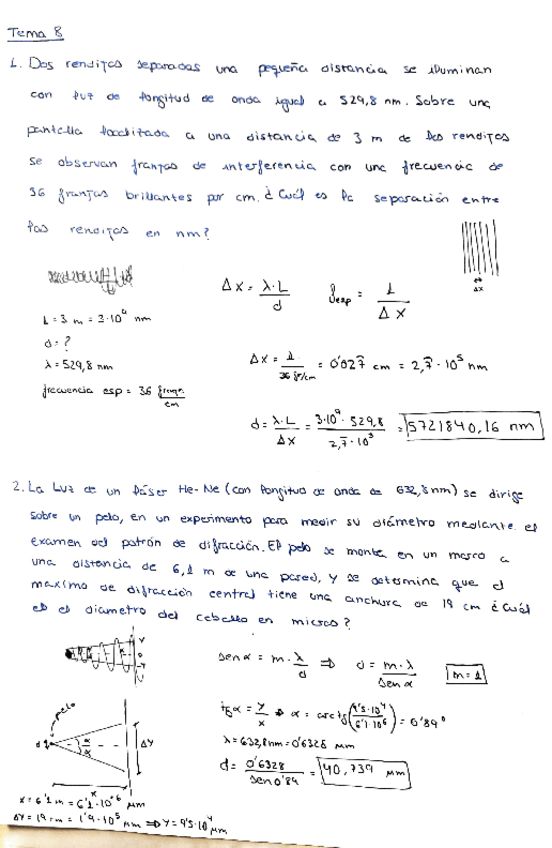 Tema 8
1. Dos rendijas separadas una pequeña distancia se iluminan
con luz de longitud de onda igual a 529,8 nm. Sobre una
pantalla localizada a una distancia de 3 m de las rendijas
se observan franjas de interferencia con una frecuencia de
36 franjas brillantes por cm. ¿Cuál es la separación entre
las rendijas en nm?
Δx
Δx = λ·L / d    f esp = 1 / Δx
L = 3 m = 3·10⁹ nm
d = ?
λ = 529,8 nm
frecuencia esp = 36 franjas / cm
Δx = 1 / 36 fr/cm = 0'027 cm = 2,7·10⁵ nm
d = λ·L / Δx = 3·10⁹ · 529,8 / 2,7·10⁵ = 5721840,16 nm
2. La Luz de un láser He-Ne (con longitud de onda de 632,8 nm) se dirige
sobre un pelo, en un experimento para medir su diámetro mediante el
examen del patrón de difracción. El pelo se monta en un marco a
una distancia de 6,1 m de una pared, y se determina que el
maximo de difracción central tiene una anchura de 19 cm ¿cuál
es el diametro del cabello en micras?
sen α = m·λ / d ⇒ d = m·λ / sen α    m = 1
pelo
d
α
α
ΔY
x
tg α = y / x ⇒ α = arctg (9'5·10⁴ / 6'1·10⁶) = 0'89°
λ = 632,8 nm = 0'6328 μm
d = 0'6328 / sen 0'89 = 40,739 μm
x = 6'1 m = 6'1·10⁶ μm
ΔY = 19 cm = 1'9·10⁵ μm ⇒ Y = 9'5·10⁴ μm